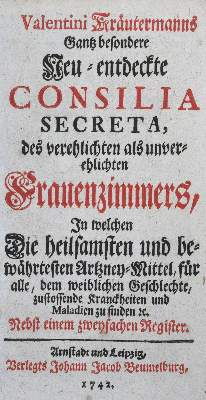 Valentini Kräutermanns
Gantz besondere
Neu-entdeckte
CONSILIA
SECRETA,
des verehlichten als unver-
ehlichten
Frauenzimmers,
In welchen
Die heilsamsten und be-
währtesten Artzney-Mittel, für
alle, dem weiblichen Geschlechte,
zustossende Kranckheiten und
Maladien zu finden ꝛc.
Nebst einem zweyfachen Register.
Arnstadt und Leipzig,
Verlegts Johann Jacob Beumelburg,
1742.